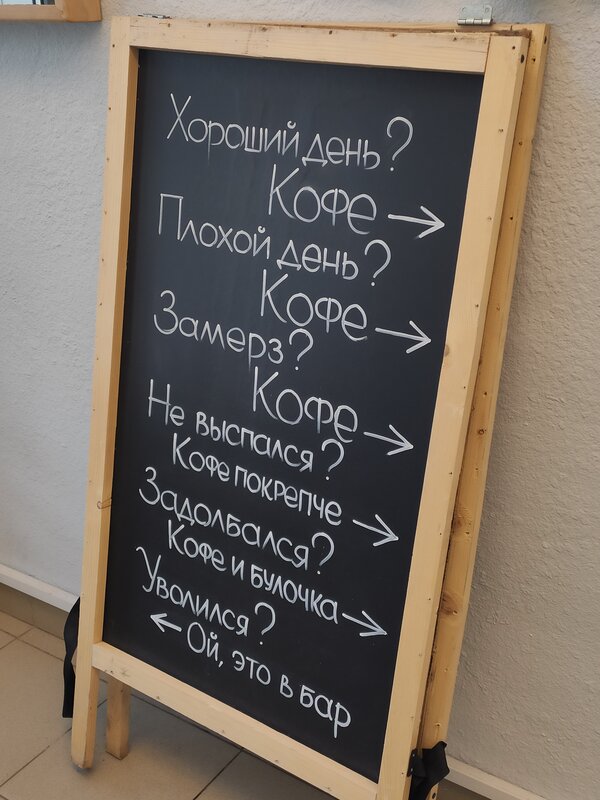 Хороший день?
Кофе →
Плохой день?
Кофе →
Замерз?
Кофе →
Не выспался?
Кофе покрепче →
Задолбался?
Кофе и булочка →
Уволился?
← Ой, это в бар